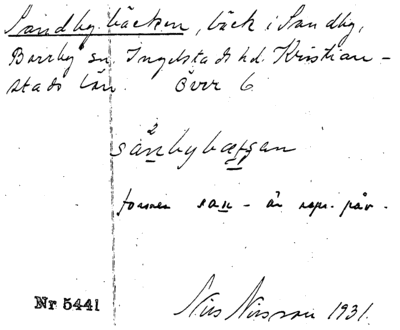 Sandbybäcken, bäck i Sandby,
Borrby sn. Ingelstads hd. Kristian-
stads län. Över 6
sånbybæʹkan
formen san- är
Nr 5441
Nils Nilsson 1931.